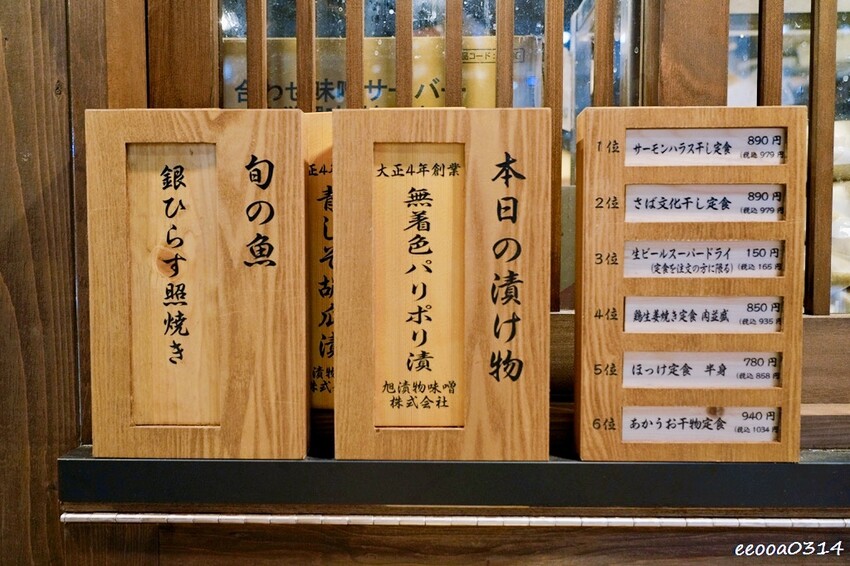 合わせ味噌サーバー
旬の魚
銀ひらす照焼き
青しそ胡瓜漬
本日の漬け物
大正4年創業
無着色パリポリ漬
旭漬物味噌
株式会社
1位 サーモンハラス干し定食 890円
(税込 979 円
2位 さば文化干し定食 890円
(税込 979 円
3位 生ビールスーパードライ 150円
(定食を注文の方に限る) (税込 165 円
4位 鶏生姜焼き定食 肉並盛 850円
(税込 935 円
5位 ほっけ定食 半身 780円
(税込 858 円
6位 あかうお干物定食 940円
(税込 1034 円
eeooa0314